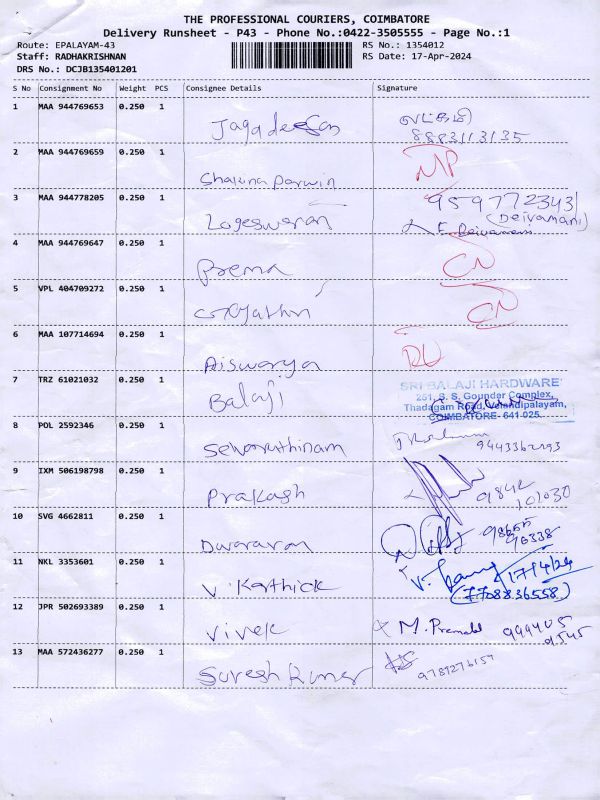 THE PROFESSIONAL COURIERS, COIMBATORE
Delivery Runsheet - P43 - Phone No.:0422-3505555 - Page No.:1
Route: EPALAYAM-43
RS No.: 1354012
Staff: RADHAKRISHNAN
RS Date: 17-Apr-2024
DRS No.: DCJB135401201
S No Consignment No Weight PCS Consignee Details Signature
1 MAA 944769653 0.250 1
Jagadeesan லட்சுமி
8883113135
2 MAA 944769659 0.250 1
Sharina Darwin NP
3 MAA 944778205 0.250 1
9597723431
(Deivamani)
Logeswaran F. Deivamani
4 MAA 944769647 0.250 1
Prema CN
5 VPL 404709272 0.250 1
Gayathri CN
6 MAA 107714694 0.250 1
Aiswarya DU
7 TRZ 61021032 0.250 1
Balaji
SRI BALAJI HARDWARE
251, S. S. Gounder Complex,
Thadagam Road, Velandipalayam,
COIMBATORE- 641 025.
8 POL 2592346 0.250 1
Selvaruthinam
9443362793
9 IXM 506198798 0.250 1
Prakash
9842
101030
10 SVG 4662811 0.250 1
Dwararan
98655
96338
11 NKL 3353601 0.250 1
17/4/24
V. Karthick (7708836558)
12 JPR 502693389 0.250 1
Vivek M. Premalal 999405
9545
13 MAA 572436277 0.250 1
Suresh Kumar
9787276157